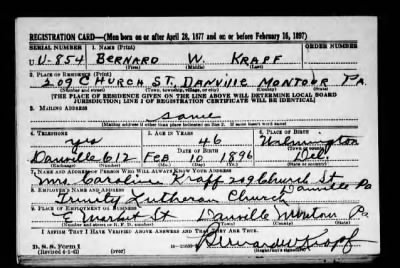 REGISTRATION CARD—(Men born on or after April 28, 1877 and on or before February 16, 1897)
SERIAL NUMBER 1. NAME (Print) ORDER NUMBER
U U-854 BERNARD W. KRAPF
2. PLACE OF RESIDENCE (Print)
209 CHURCH ST. DANVILLE MONTOUR PA.
(Number and street) (Town, township, village, or city) (County) (State)
[THE PLACE OF RESIDENCE GIVEN ON THE LINE ABOVE WILL DETERMINE LOCAL BOARD
JURISDICTION; LINE 2 OF REGISTRATION CERTIFICATE WILL BE IDENTICAL]
3. MAILING ADDRESS
same
[Mailing address if other than place indicated on line 2. If same insert word same]
4. TELEPHONE 5. AGE IN YEARS 6. PLACE OF BIRTH
yes 46 Wilmington
DATE OF BIRTH
Danville 612 FEB 10 1896 Del.
(Exchange) (Number) (Mo.) (Day) (Yr.) (State or country)
7. NAME AND ADDRESS OF PERSON WHO WILL ALWAYS KNOW YOUR ADDRESS
Mrs. Caroline Krapf 209 Church St
8. EMPLOYER'S NAME AND ADDRESS Danville Pa
Trinity Lutheran Church
9. PLACE OF EMPLOYMENT OR BUSINESS
E Market St Danville Montour Pa
(Number and street or R. F. D. number) (Town) (County) (State)
I AFFIRM THAT I HAVE VERIFIED ABOVE ANSWERS AND THAT THEY ARE TRUE.
D. S. S. Form 1
(Revised 4-1-42) Bernard W Krapf